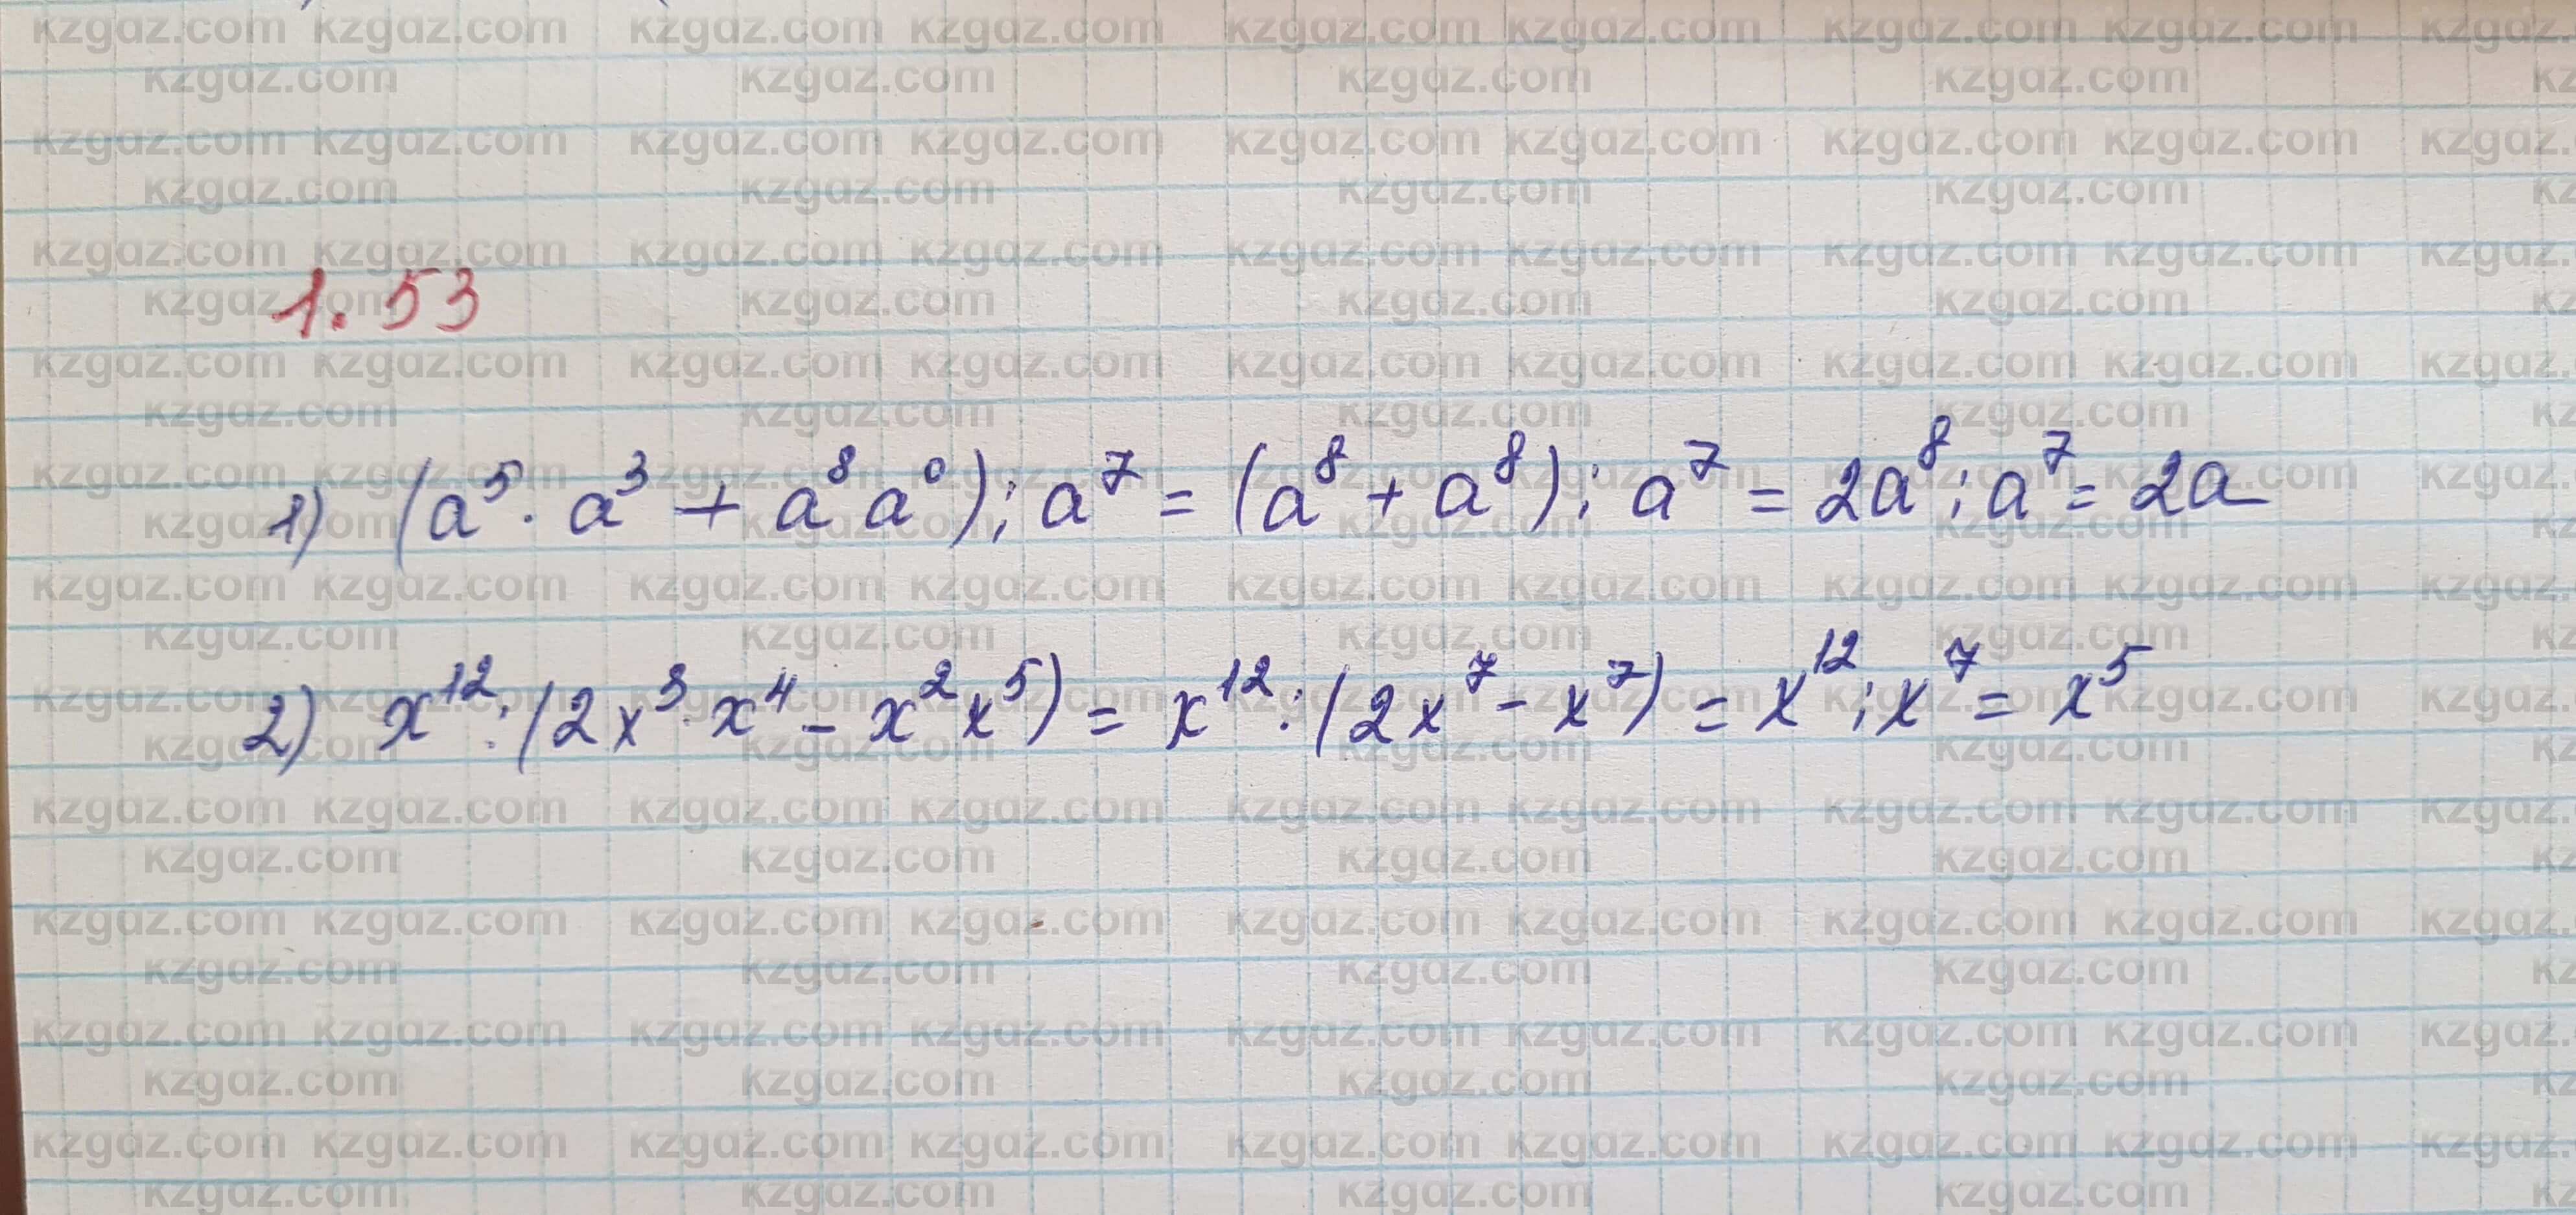 1.53
1) (a⁵ · a³ + a⁸ a⁰) : a⁷ = (a⁸ + a⁸) : a⁷ = 2a⁸ : a⁷ = 2a
2) x¹² : (2x³ · x⁴ − x² x⁵) = x¹² : (2x⁷ − x⁷) = x¹² : x⁷ = x⁵
kzgdz.com